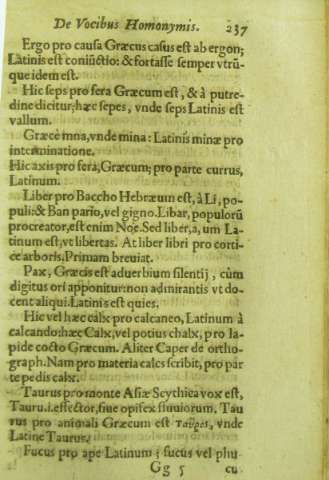 De Vocibus Homonymis. 237
Ergo pro causa Græcus casus est ab ergon;
Latinis est coniūctio: & fortasse semper vtrū-
que idem est.
Hic seps pro fera Græcum est, & à putre-
dine dicitur; hæc sepes, vnde seps Latinis est
vallum.
Græcè mna, vnde mina: Latinis minæ pro
interminatione.
Hic axis pro fera, Græcum; pro parte currus,
Latinum.
Liber pro Baccho Hebræum est, à Li, po-
puli: & Ban pario, vel gigno. Libar, populorū
procreator, est enim Noe. Sed liber, a, um La-
tinum est, vt libertas. At liber libri pro corti-
ce arboris. Primam breuiat.
Pax, Græcis est aduerbium silentij, cùm
digitus ori apponitur: non admirantis vt do-
cent aliqui. Latinis est quies.
Hic vel hæc calx pro calcaneo, Latinum à
calcando: hæc Calx, vel potius chalx, pro la-
pide cocto Græcum. Aliter Caper de ortho-
graph. Nam pro materia calcs scribit, pro par
te pedis calx.
Taurus pro monte Asiæ Scythica vox est,
Tauru. i. effector, siue opifex fluuiorum. Tau
rus pro animali Græcum est ταῦρος, vnde
Latinè Taurus.
Fucus pro ape Latinum; fucus vel phu-
Gg 5 cu